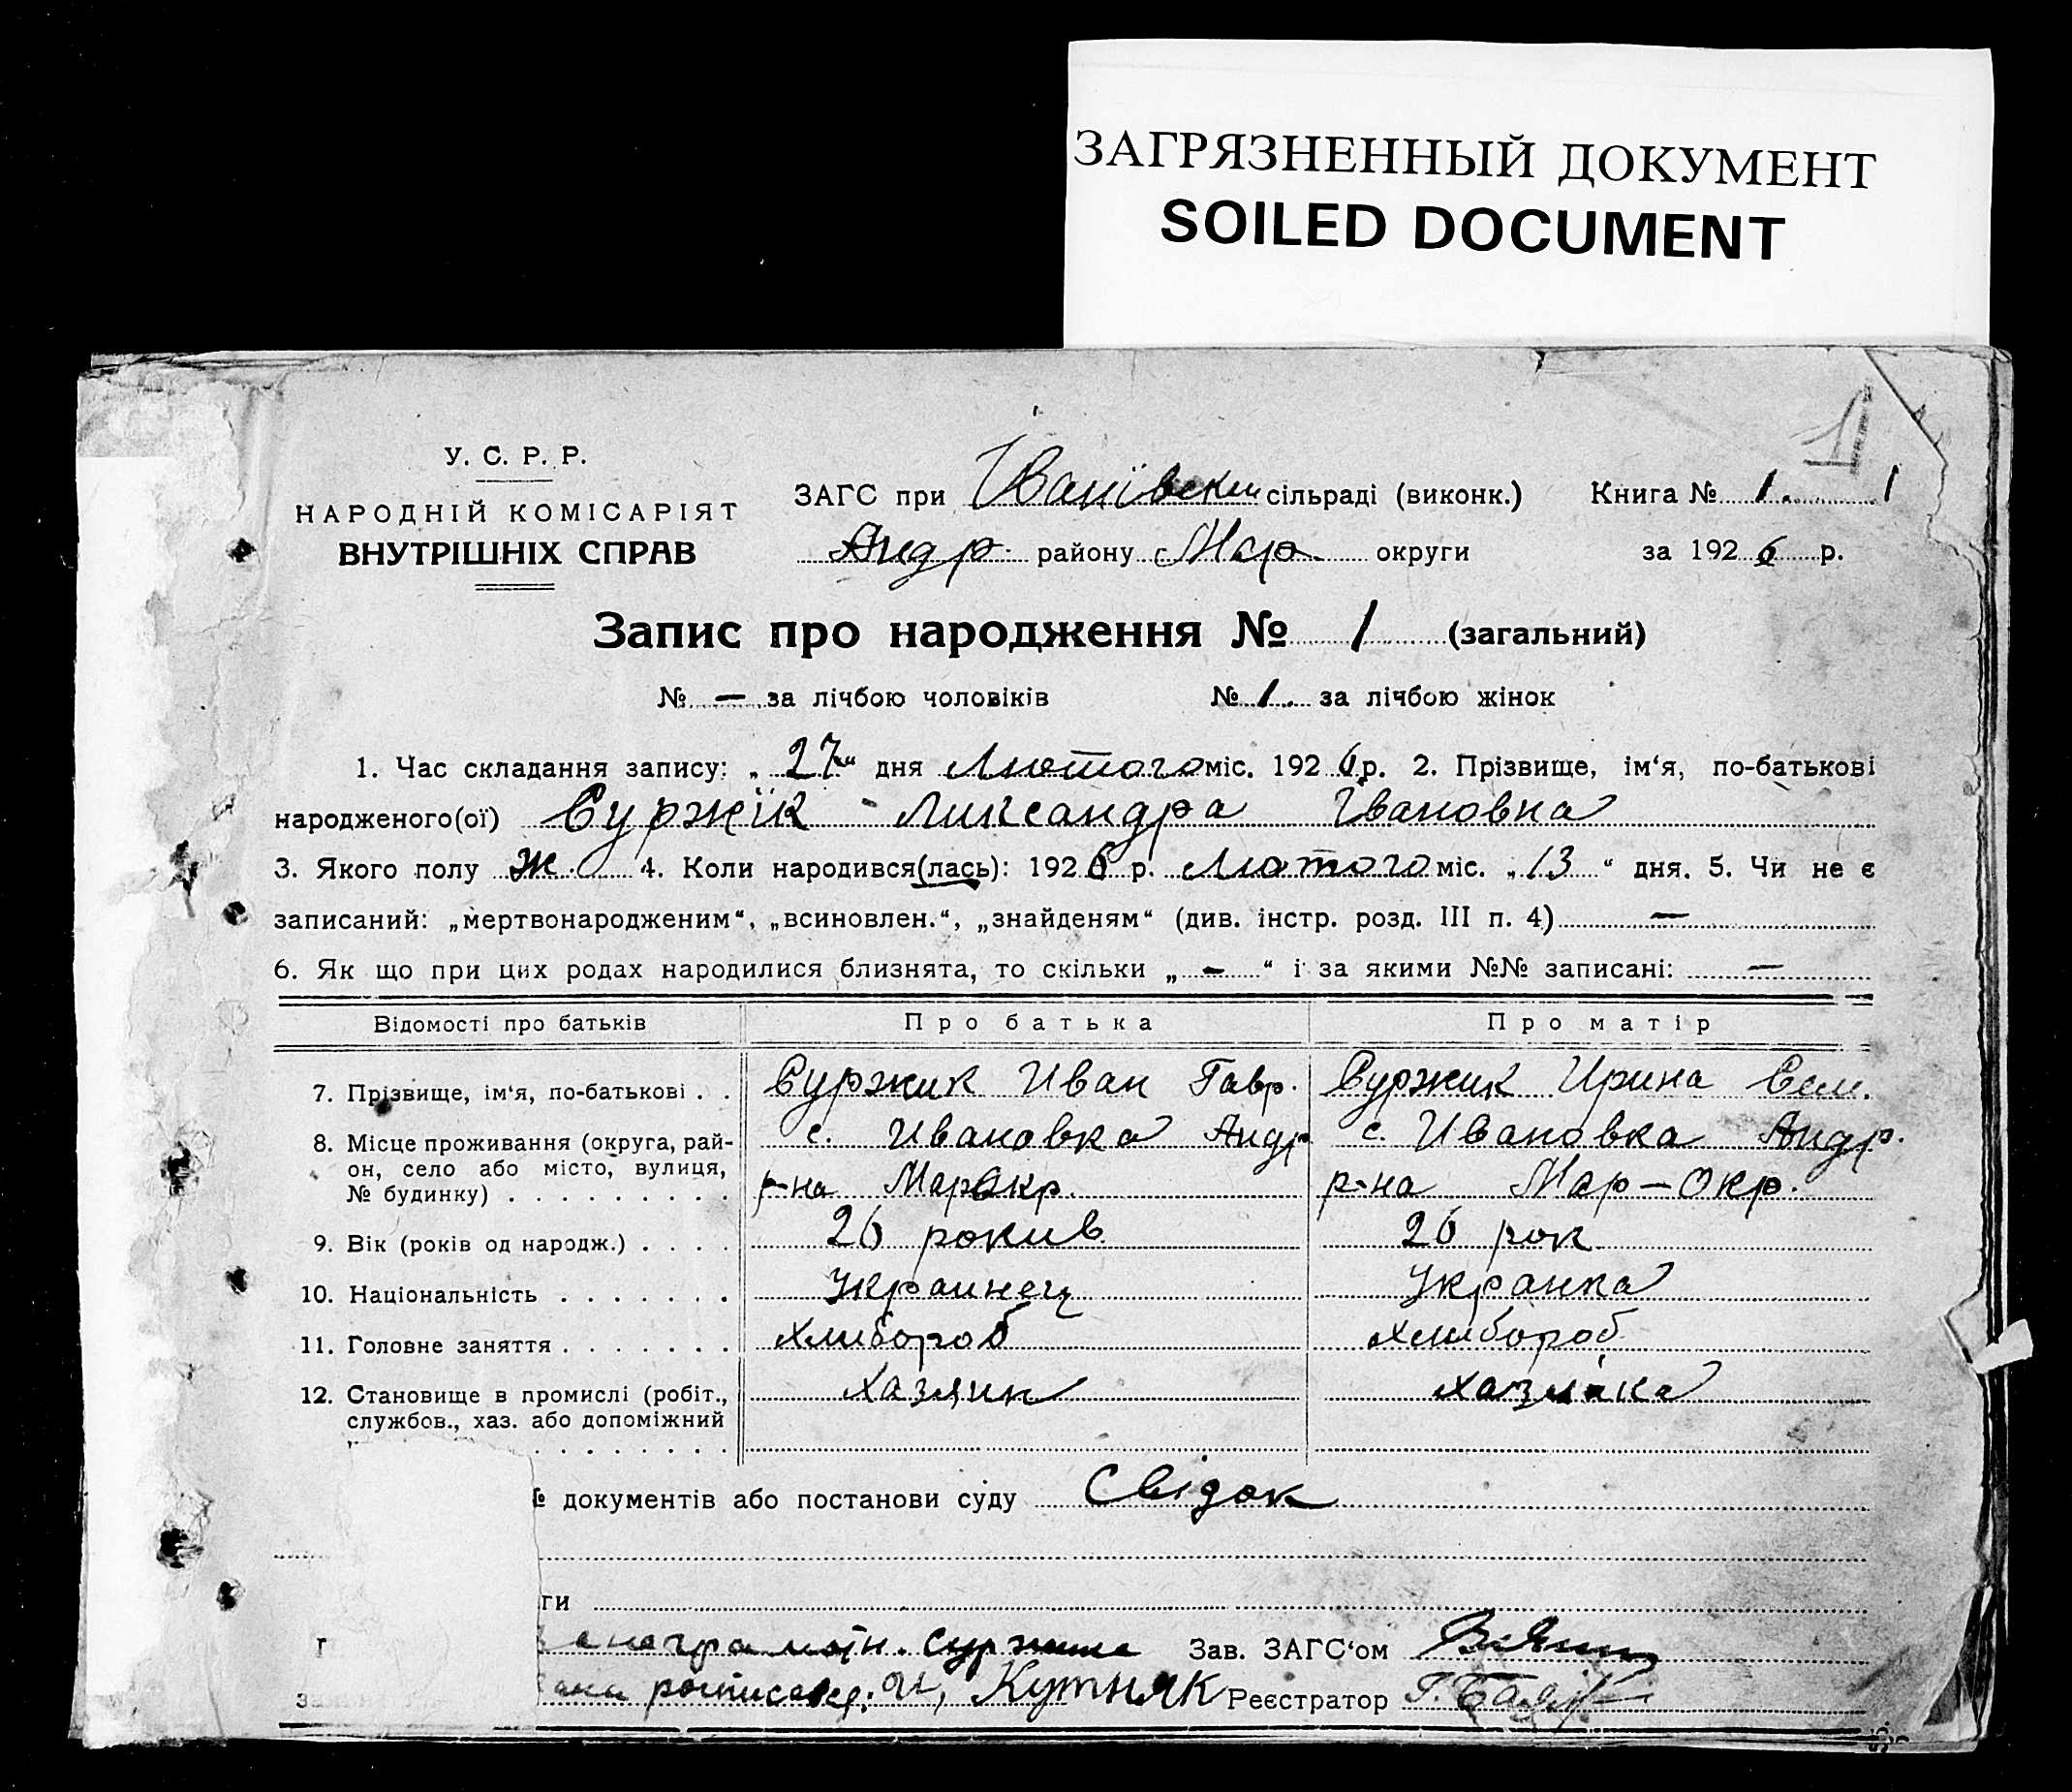 ЗАГРЯЗНЕННЫЙ ДОКУМЕНТ
SOILED DOCUMENT
1
У. С. Р. Р.
НАРОДНІЙ КОМІСАРІЯТ
ВНУТРІШНІХ СПРАВ
ЗАГС при Іванівскій сільраді (виконк.) Книга № 1. 1
Андр. району Мар. округи за 1926 р.
Запис про народження № 1 (загальний)
№ — за лічбою чоловіків № 1. за лічбою жінок
1. Час складання запису: „27“ дня Лютого міс. 1926 р. 2. Прізвище, ім‘я, по-батькові
народженого(ої) Суржік Ликсандра Івановна
3. Якого полу ж. 4. Коли народився(лась): 1926 р. Лютого міс. „13“ дня. 5. Чи не є
записаний: „мертвонародженим“, „всиновлен.“, „знайденям“ (див. інстр. розд. III п. 4) —
6. Як що при цих родах народилися близнята, то скільки „ — “ і за якими №№ записані: —
Відомості про батьків Про батька Про матір
7. Прізвище, ім‘я, по-батькові . . Суржик Иван Гавр. Суржик Ирина Сем.
8. Місце проживання (округа, рай- с. Ивановка Андр с. Ивановка Андр.
он, село або місто, вулиця,
№ будинку) . . . . . . . . . р-на МарОкр. р-на Мар-Окр.
9. Вік (років од народж.) . . . . 26 рокив 26 рок
10. Національність . . . . . . . Украинец Укранка
11. Головне заняття . . . . . . . Хлибороб Хлибороб
12. Становище в промислі (робіт., Хазяин Хазяйка
службов., хаз. або допоміжний
№ документів або постанови суду Свідок
ти
г неграмотн. Сурж Зав. ЗАГС‘ом
з И, Кутняк Реєстратор Г.